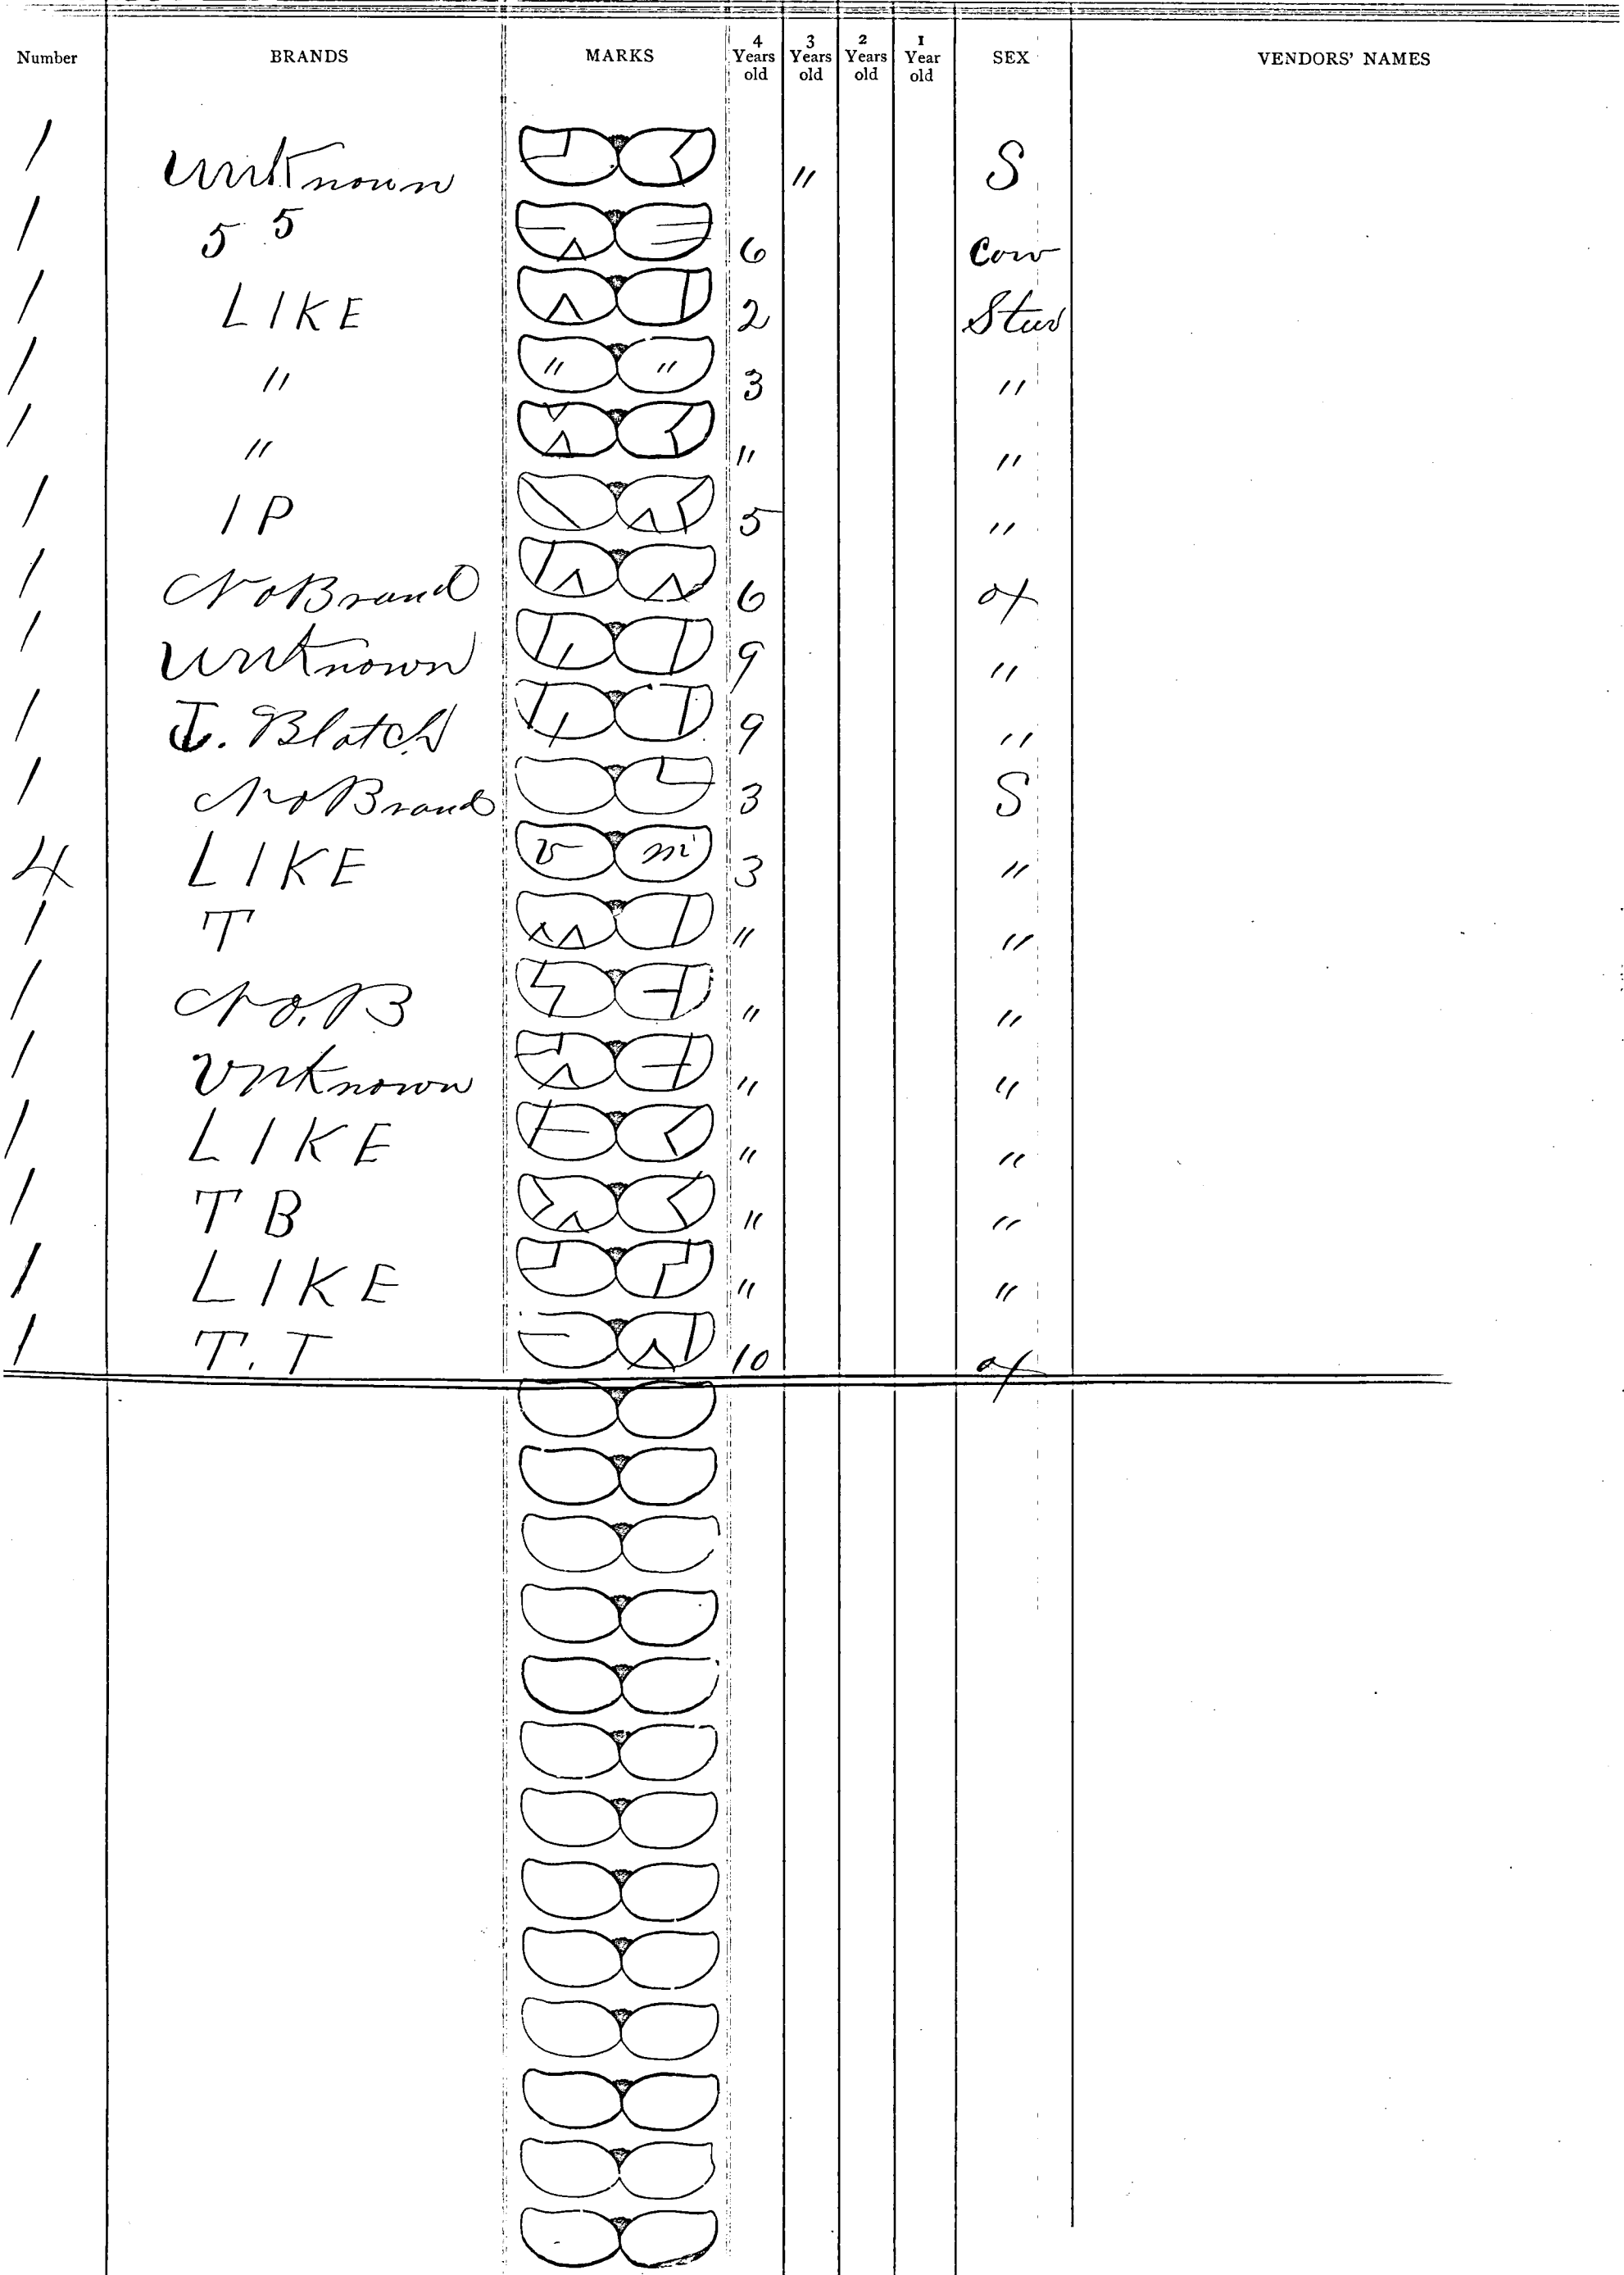 Number BRANDS MARKS 4 Years old 3 Years old 2 Years old 1 Year old SEX VENDORS' NAMES
1 Unknown " S
1 5 5 6 Cow
1 LIKE 2
1 " " " 3 "
1 " " "
1 IP 5 "
1 No Brand 6 ox
1 Unknown 9 "
1 Blotch 9 "
1 No Brand 3 S
4 LIKE v m 3 "
1 T " "
1 No. B " "
1 Unknown " "
1 LIKE " "
1 T B " "
1 LIKE " "
1 T. T 10 ox